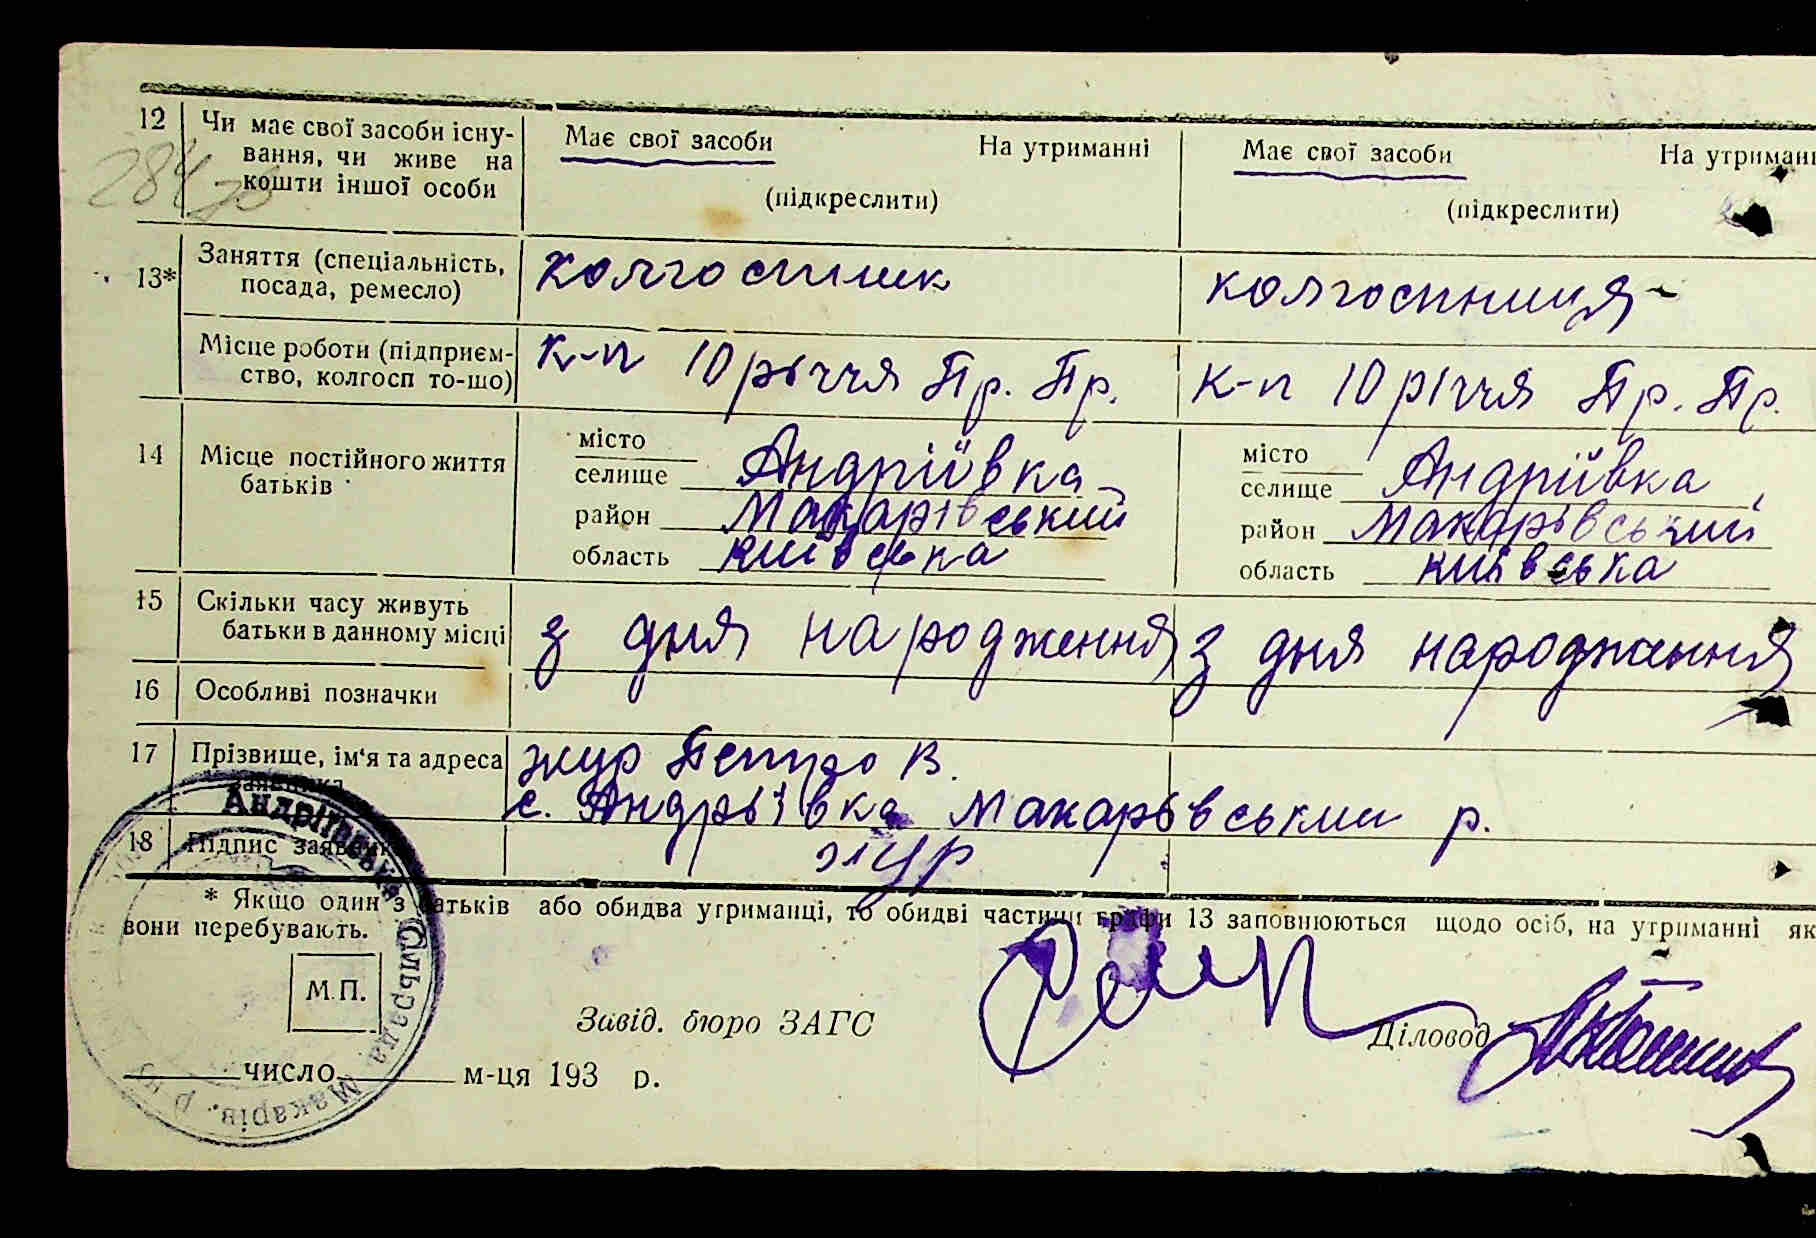 12 Чи має свої засоби існу- Має свої засоби На утриманні Має свої засоби На утриманн
вання, чи живе на
кошти іншої особи (підкреслити) (підкреслити)
284
13* Заняття (спеціальність, колгоспник колгоспниця
посада, ремесло)
Місце роботи (підприєм- к-п 10 річчя Пр. Пр. к-п 10 річчя Пр. Пр.
ство, колгосп то-що)
14 Місце постійного життя місто місто
батьків селище Андріївка селище Андріївка
район Макарівський район Макарівський
область київська область київська
15 Скільки часу живуть з дня народження з дня народження
батьки в данному місці
16 Особливі позначки
17 Прізвище, ім'я та адреса жур Петро В.
заявника с. Андріївка Макарівський р.
18 Підпис заявника жур
* Якщо один з батьків або обидва утриманці, то обидві частини графи 13 заповнюються щодо осіб, на утриманні як
вони перебувають.
М.П.
Завід. бюро ЗАГС Діловод
число м-ця 193 р.
Андріївська Сільрада Макарів. р-ну